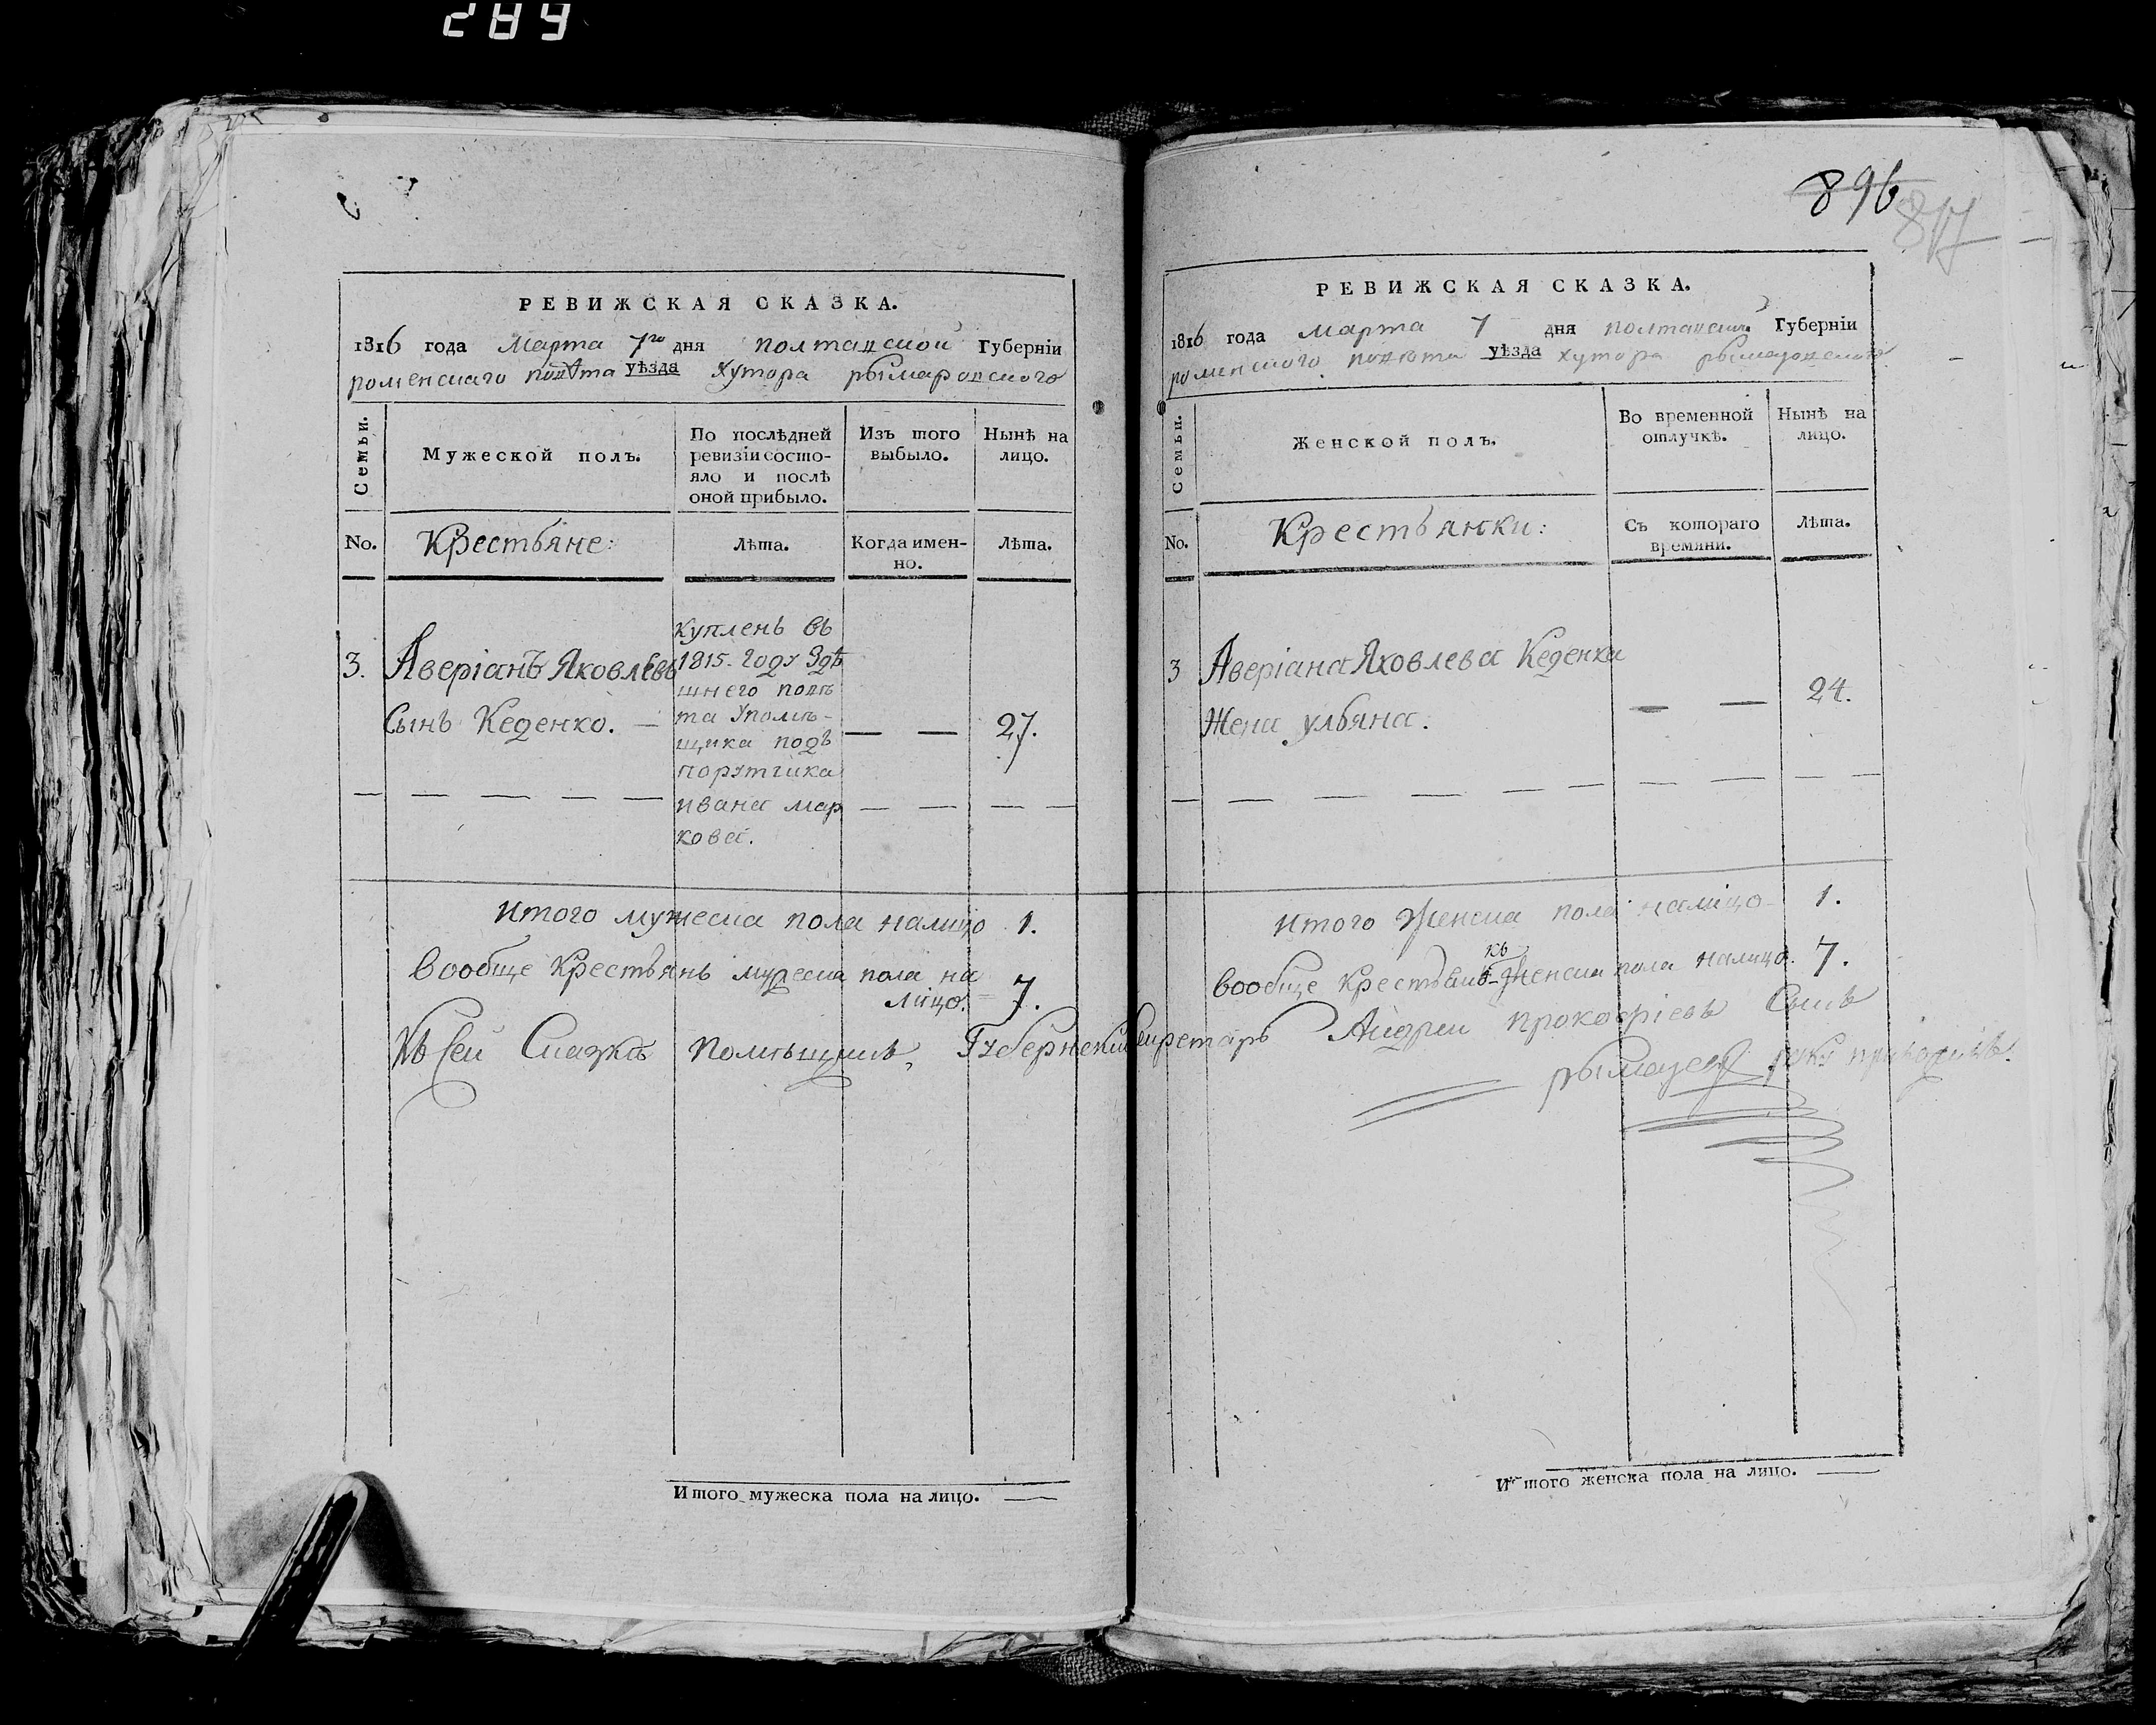 289
РЕВИЖСКАЯ СКАЗКА.
1816 года Марта 7го дня полтавской Губернїи
роменскаго повѣта уѣзда хутора рымаровского
Семьи.
Мужеской полъ.
По послѣдней ревизїи состо-
яло и послѣ
оной прибыло.
Изъ того
выбыло.
Нынѣ на
лицо.
No.
Крестьяне:
Лѣта.
Когда имен-
но.
Лѣта.
3.
Аверіанъ Яковлевъ
Сынъ Кеденко.
куплень въ
1815. году Здѣ
шнего повѣ
та Упомѣ-
щика подъ
порутчика
ивана мар
кова.
27.
итого мужеска пола налицо 1.
вообще крестьянь мужеска пола на
лицо. 7.
Къ сей Сказкѣ помѣщикъ, Губернский Секретарь Андрей прокофіевъ Сынъ
896
817
РЕВИЖСКАЯ СКАЗКА.
1816 года марта 7 дня полтавской Губернїи
роменского повѣта уѣзда хутора рымаровского
Семьи.
Женской полъ.
Во временной
отлучкѣ.
Нынѣ на
лицо.
No.
Крестьянки:
Съ котораго
времяни.
Лѣта.
3
Аверіана Яковлева Кеденка
Жена ульяна.
24.
итого Женска пола налицо 1.
вообще крестьянъ женска пола налицо. 7.
къ
руку приложилъ.
Итого мужеска пола на лицо.
Итого женска пола на лицо.